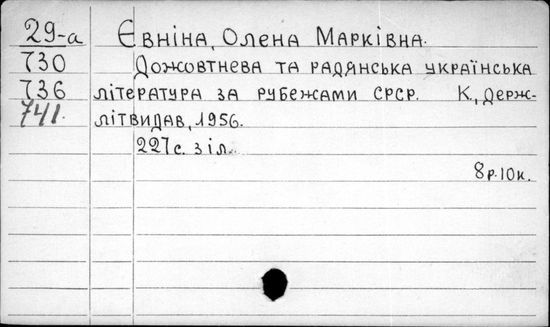 29-а Євніна, Олена Марківна.
730 Дожовтнева та радянська українська
736 література за рубежами СРСР. К, Держ-
741. літвидав, 1956.
227с. з іл.
8р.10к.